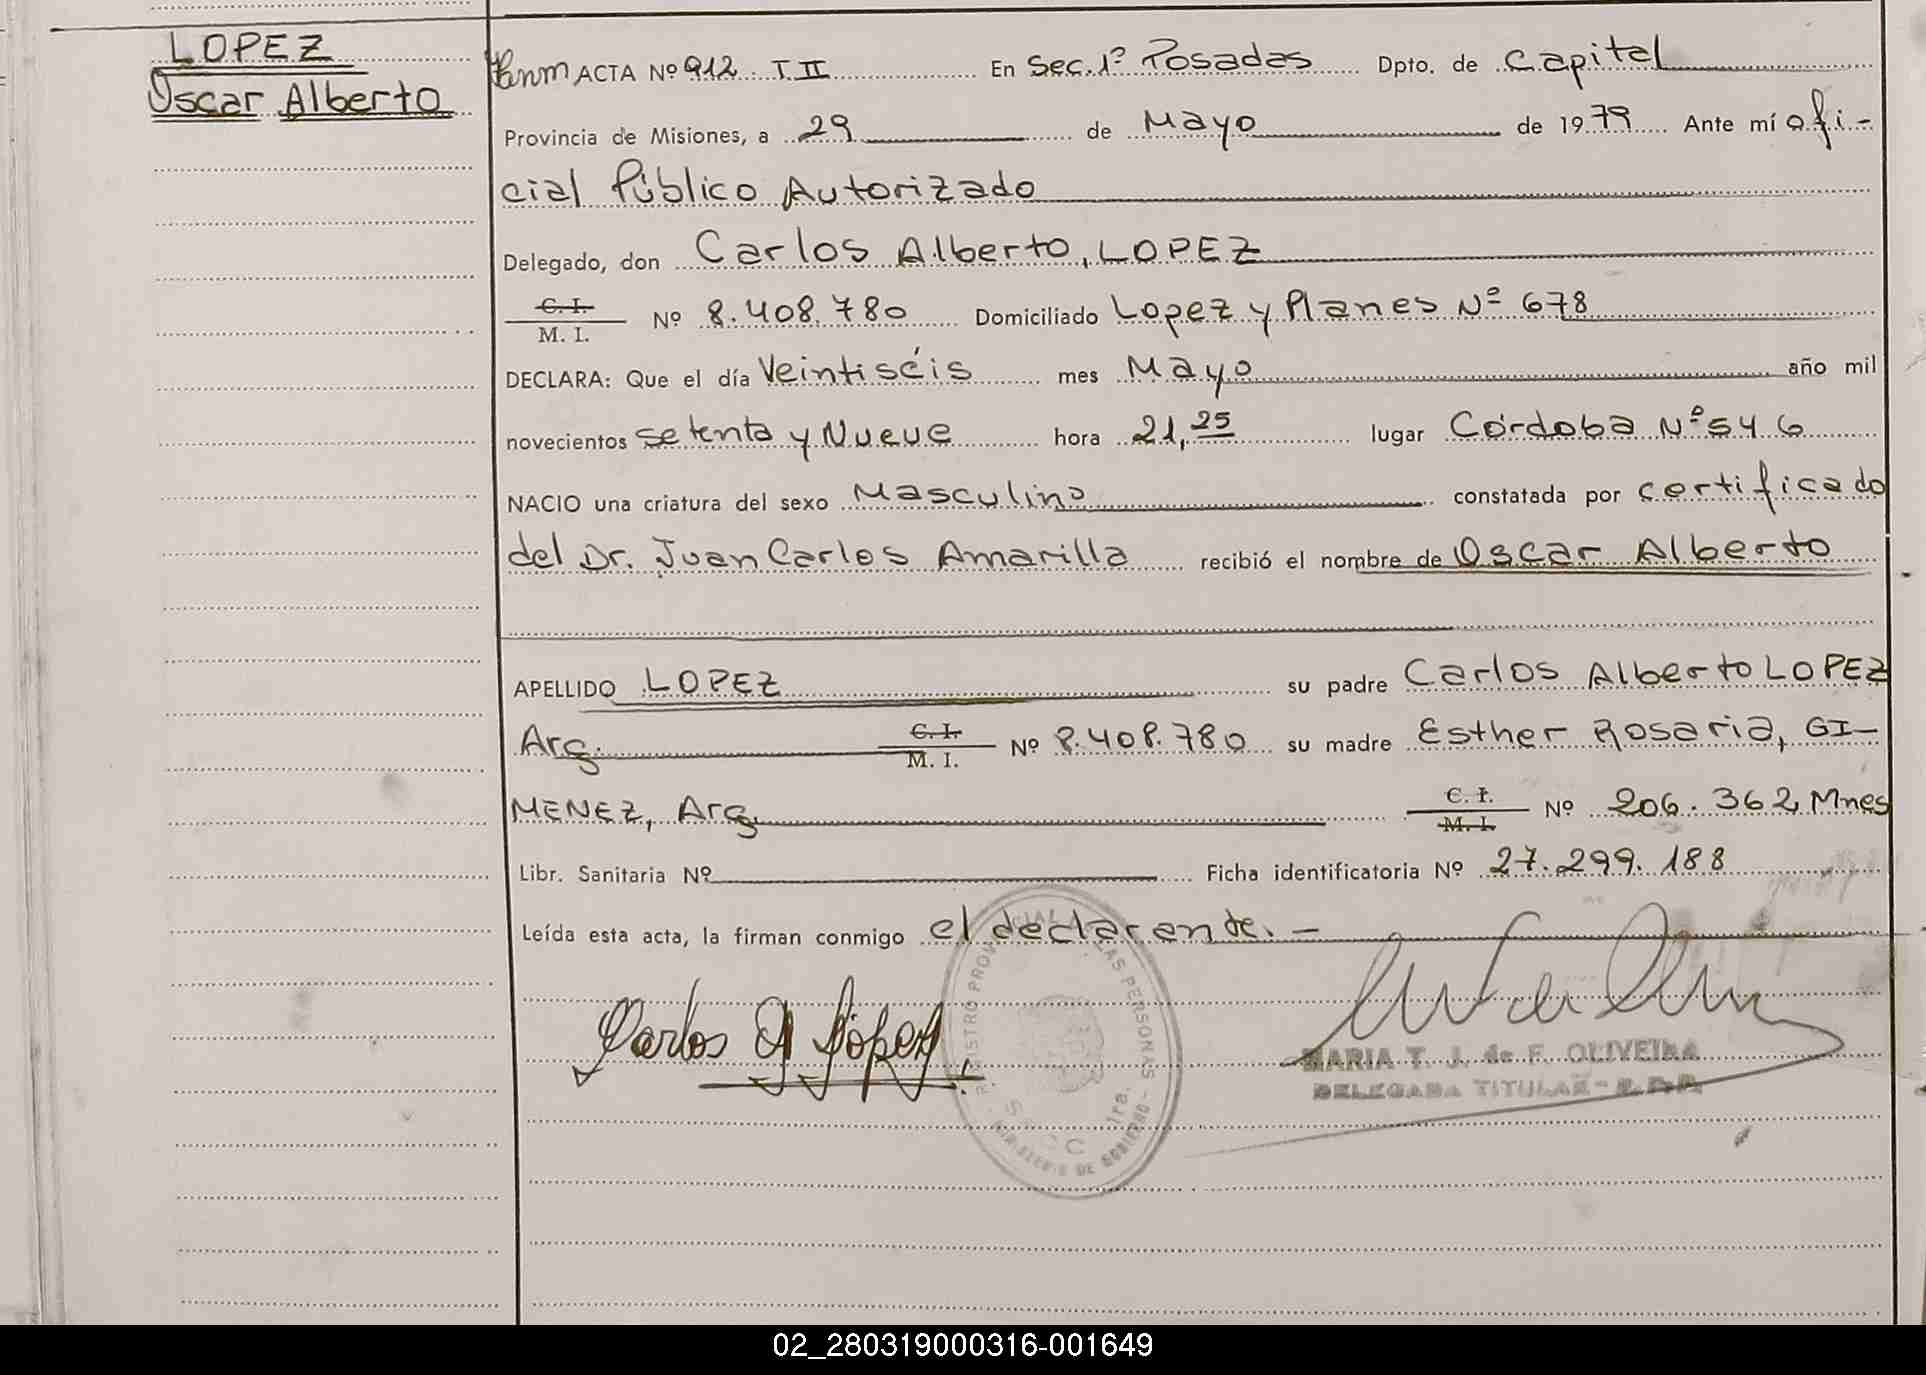 LOPEZ
Oscar Alberto
ACTA Nº 912 T II En Sec. 1º Posadas Dpto. de Capital
Provincia de Misiones, a 29 de Mayo de 1979 Ante mí ofi-
cial Público Autorizado
Delegado, don Carlos Alberto, LOPEZ
C. I.
M. I. Nº 8.408.780 Domiciliado Lopez y Planes Nº 678
DECLARA: Que el día Veintiséis mes Mayo año mil
novecientos setenta y Nueve hora 21,25 lugar Córdoba Nº 546
NACIO una criatura del sexo Masculino constatada por certificado
del Dr. Juan Carlos Amarilla recibió el nombre de Oscar Alberto
APELLIDO LOPEZ su padre Carlos Alberto LOPEZ
Arg. C. I.
M. I. Nº 8.408.780 su madre Esther Rosaria, GI-
MENEZ, Arg. C. I.
M. I. Nº 206.362 Mnes
Libr. Sanitaria Nº Ficha identificatoria Nº 27.299.188
Leída esta acta, la firman conmigo el declarante.-
Carlos A López
MARIA T. J. de F. OLIVEIRA
DELEGADA TITULAR - R.P.P.
REGISTRO PROVINCIAL DE LAS PERSONAS
SECC 1ra.
MINISTERIO DE GOBIERNO
02_280319000316-001649